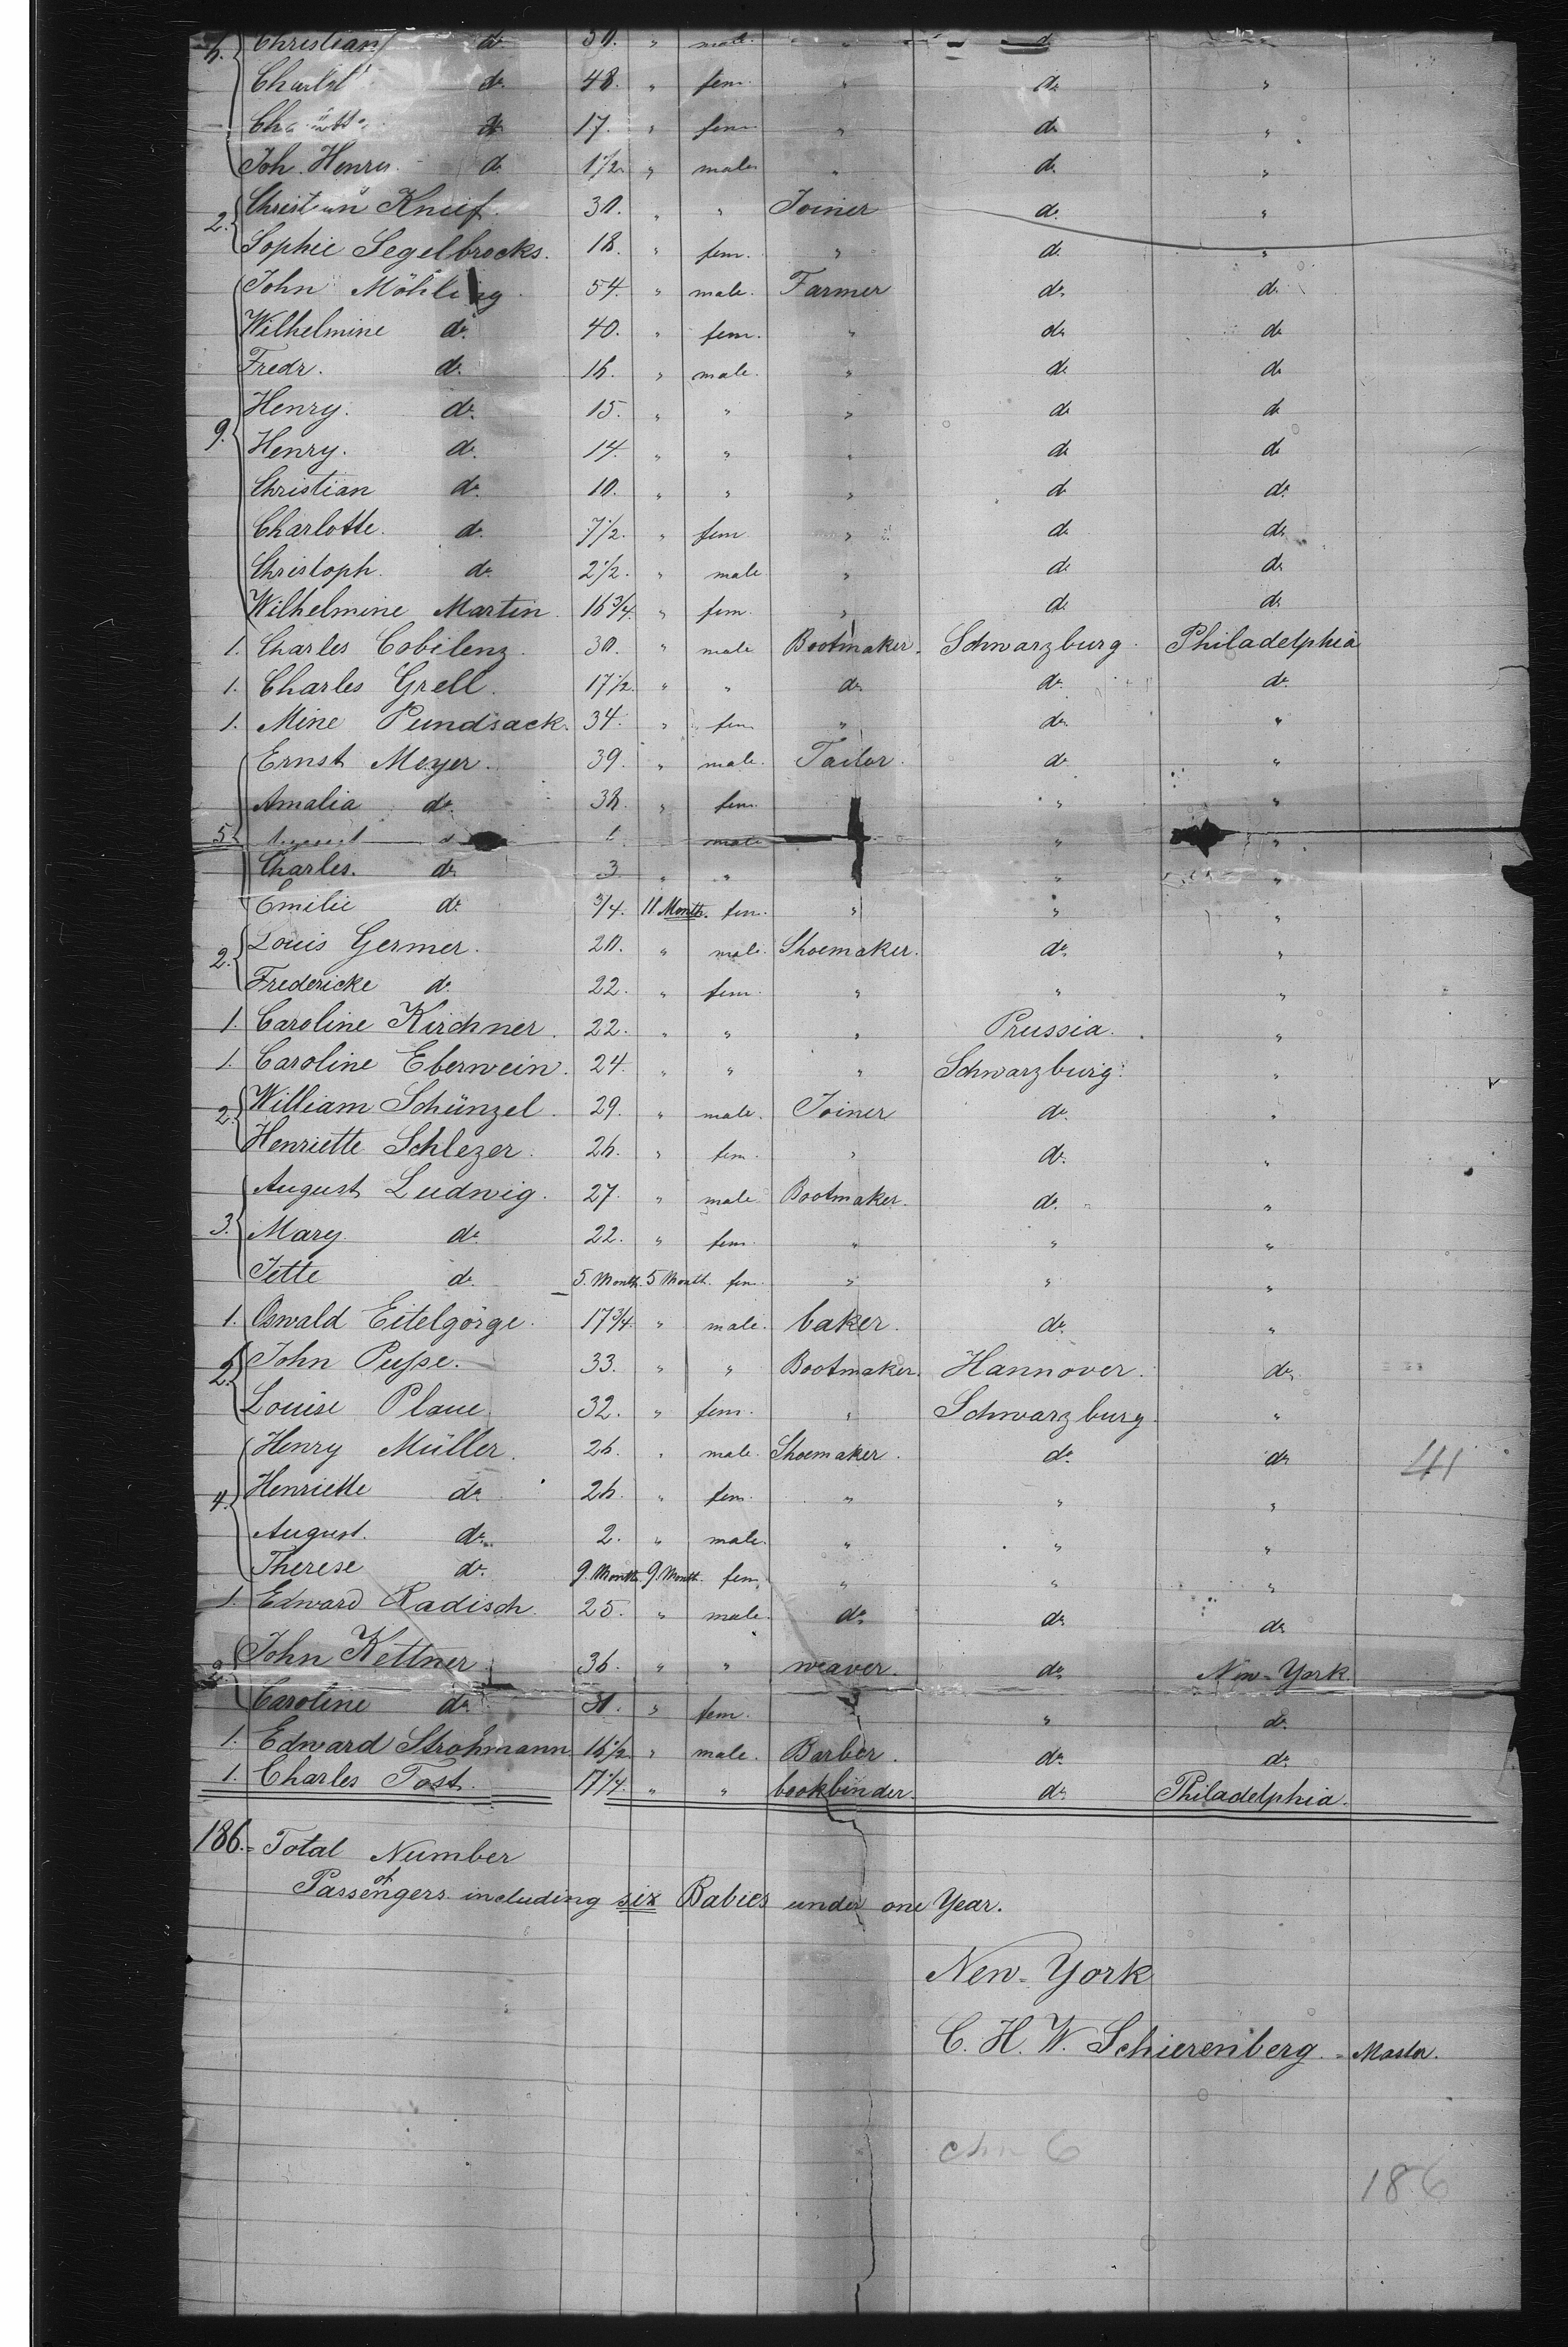 Christian do 30. " male. " do "
Charlot do. 48. " fem. " do. "
do 17. " fem. " do. "
Joh. Henry. do. 1 1/2. " male. " do. "
2. Christian Knief. 30. " " Joiner do. "
Sophie Segelbrocks. 18. " fem. " do. "
John Möhling. 54. " male. Farmer do. do.
Wilhelmine do. 40. " fem. " do. do.
Fredr. do. 16. " male. " do. do.
Henry. do. 15. " " " do. do.
9. Henry. do. 14. " " " do. do.
Christian do. 10. " " " do. do.
Charlotte. do. 7 1/2. " fem " do. do.
Christoph. do. 2 1/2. " male " do. do.
Wilhelmine Martin. 16 3/4. " fem. " do. do.
1. Charles Cobilenz. 30. " male Bootmaker. Schwarzburg. Philadelphia
1. Charles Grell. 17 1/2. " " do. do. do.
1. Mine Pundsack. 34. " fem " do. "
Ernst Meyer. 39. " male. Tailor. do. "
Amalia do. 36. " fem. " "
5. August male " "
Charles. do. 3 " " " "
Emilie do. 3/4. 11 Month. fem. " " "
2. Louis Germer. 20. " male. Shoemaker. do. "
Fredericke do. 22. " fem. " " "
1. Caroline Kirchner. 22. " " " Prussia. "
1. Caroline Eberwein. 24. " " " Schwarzburg. "
2. William Schünzel. 29. " male. Joiner do. "
Henriette Schlezer. 26. " fem. " do. "
August Ludwig. 27. " male Bootmaker. do. "
3. Mary. do. 22. " fem. " " "
Jette do. 5. Month. 5 Month. fem. " " "
1. Oswald Eitelgörge. 17 3/4. " male. baker. do. "
2. John Pusse. 33. " " Bootmaker. Hannover. do.
Louise Plaue. 32. " fem. " Schwarzburg. "
Henry Müller. 26. " male. Shoemaker. do. do. 41
4. Henriette do. 26. " fem. " " "
August. do. 2. " male. " " "
Therese do. 9. Month. 9. Month. fem. " " "
1. Edward Radisch. 25. " male. do. do. do.
2. John Kettner. 36. " " weaver. do. New-York.
Caroline do. " fem. " " do.
1. Edward Strohmann 16 1/2. " male. Barber. do. do.
1. Charles Tost. 17 1/4. " " bookbinder. do. Philadelphia.
186. = Total Number
of
Passengers including six Babies under one Year.
New-York
C. H. W. Schierenberg. - Master.
186